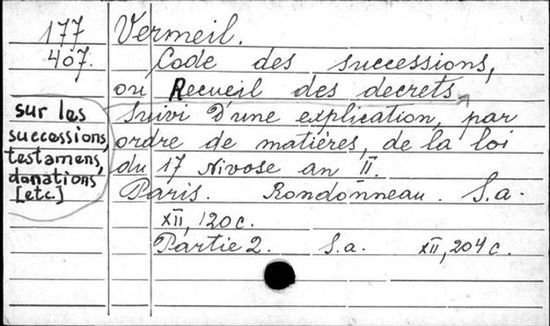 177
407.
Vermeil.
Code des successions,
ou Recueil des decrets
sur les
successions,
testamens,
donations
[etc.]
suivi d'une explication, par
ordre de matières, de la loi
du 17 Nivose an II.
Paris. Rondonneau. S.a.
XII, 120 c.
Partie 2. S.a. XII, 204 c.